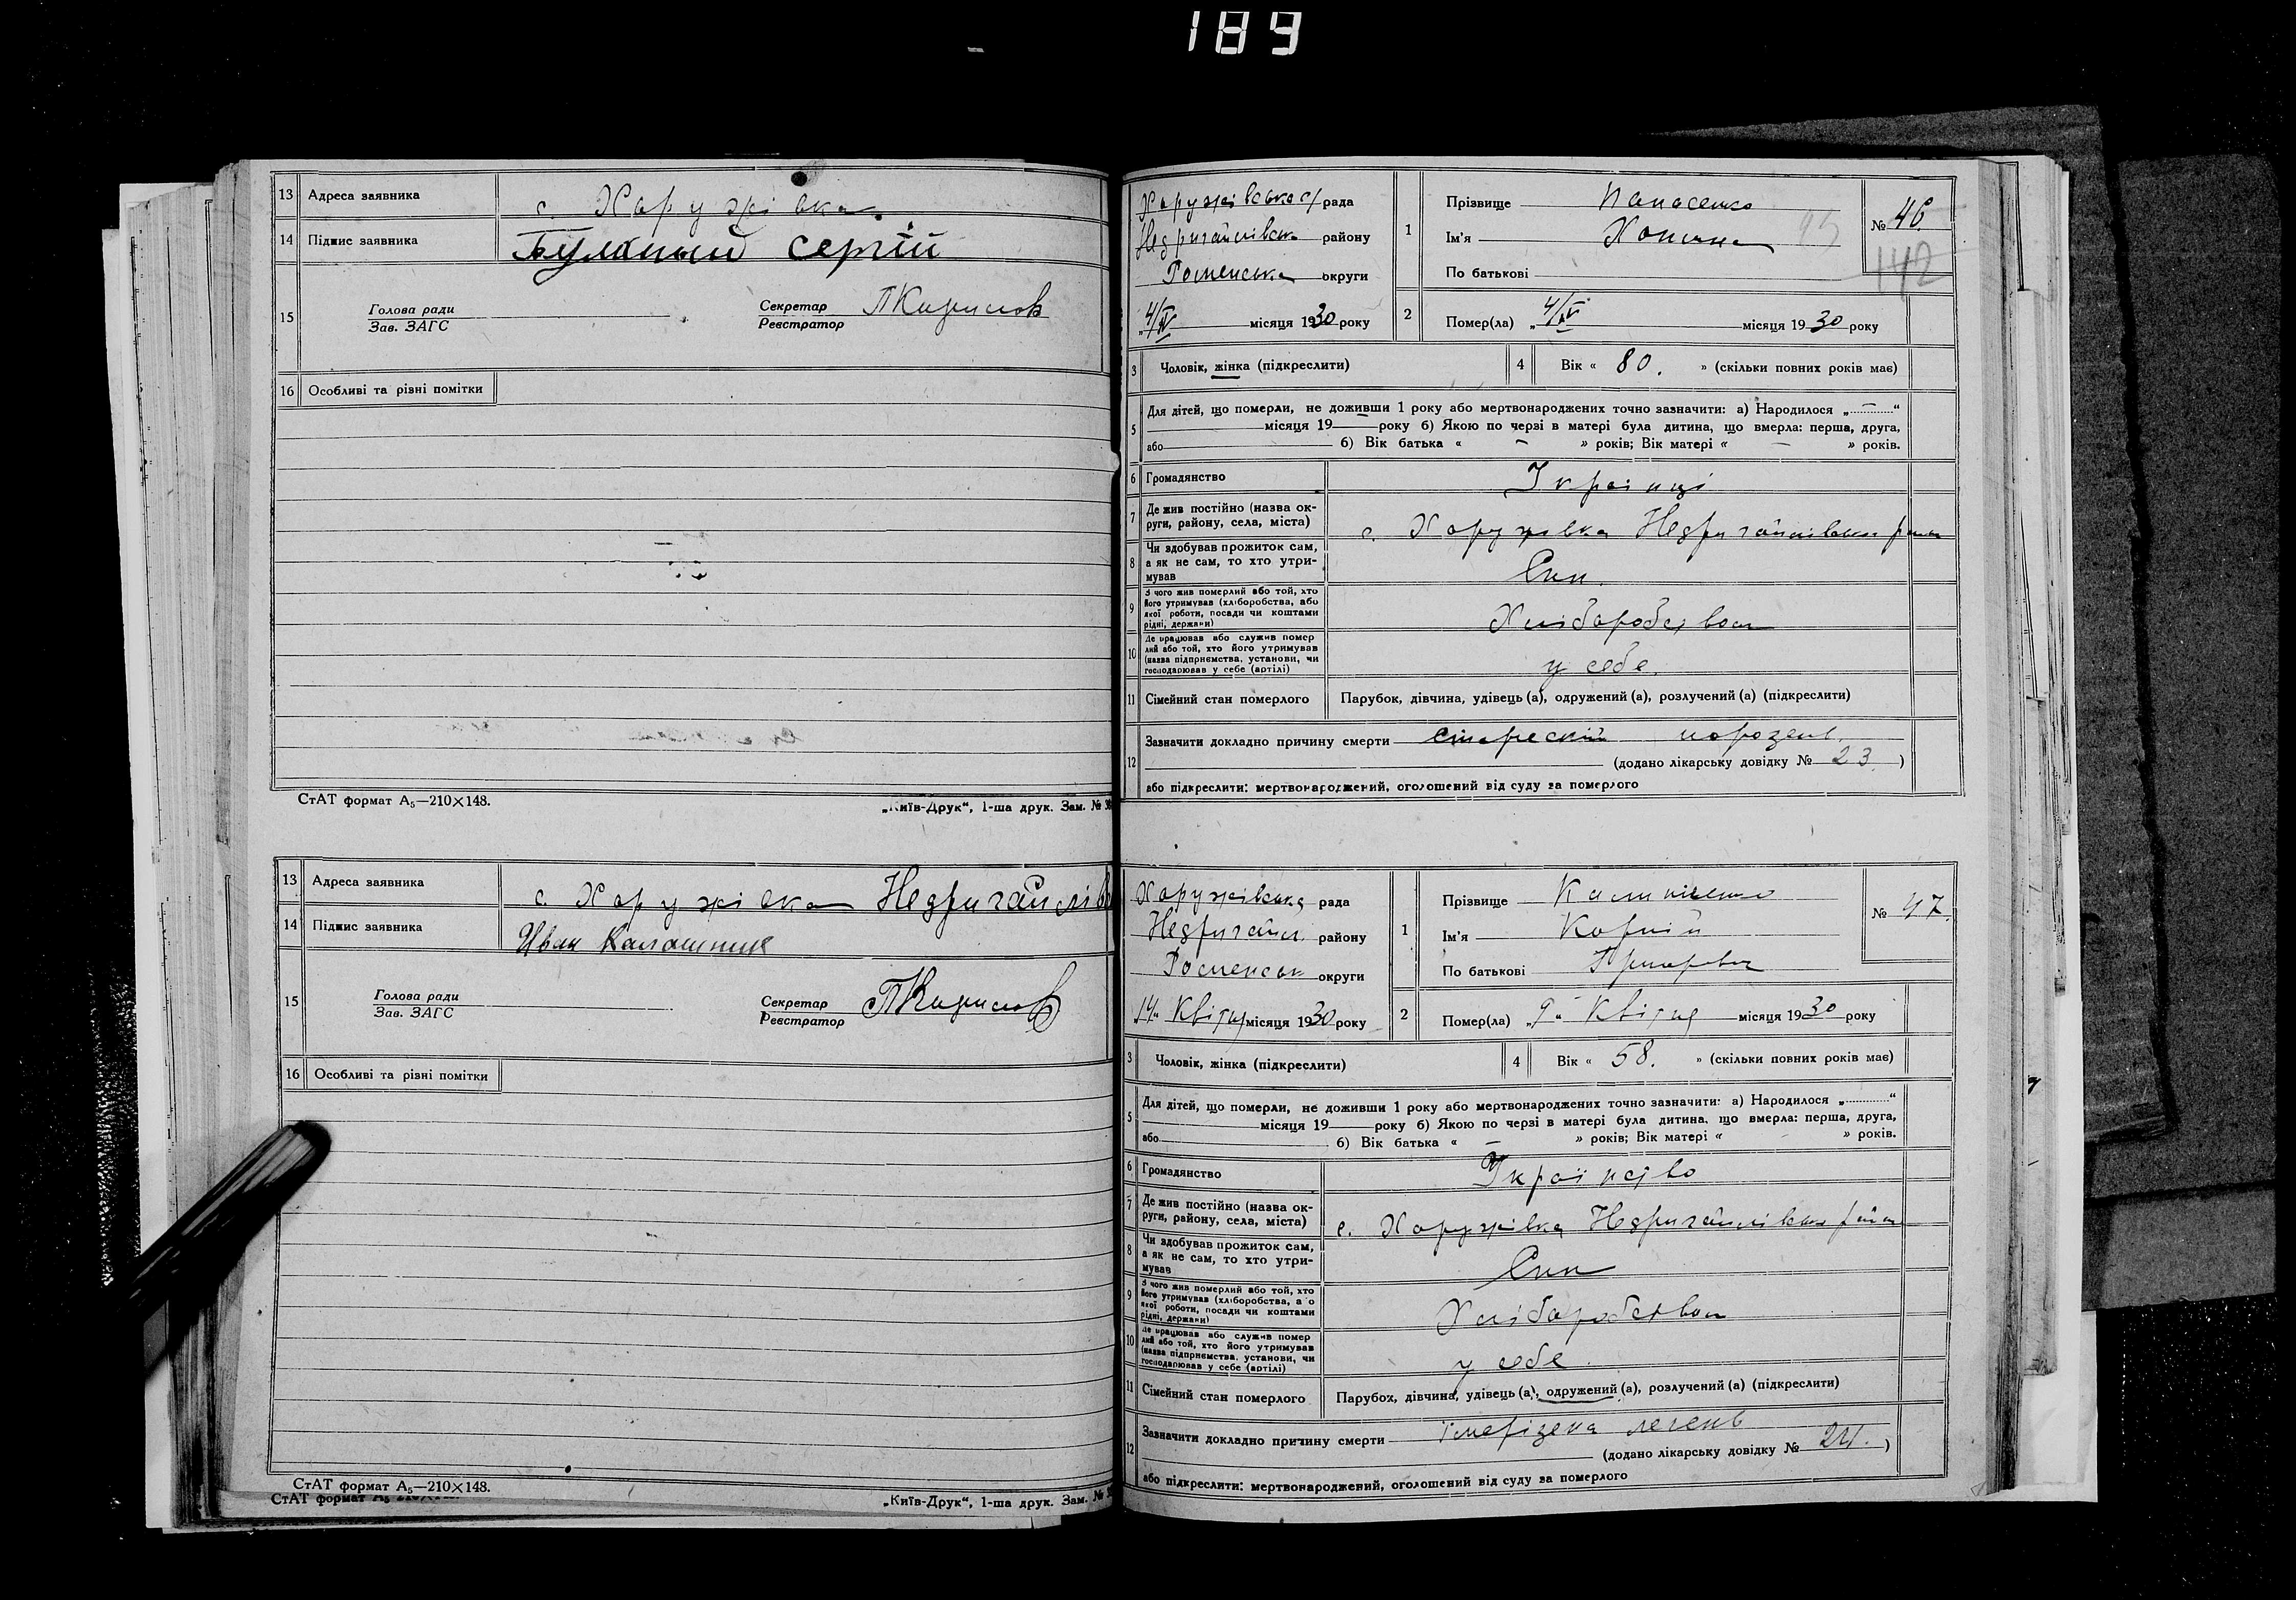 189
13 Адреса заявника с. Хоружівка.
14 Підпис заявника Сергій
15 Голова ради
Зав. ЗАГС
Секретар
Реєстратор
16 Особливі та різні помітки
СтАТ формат А₅—210×148.
„Київ-Друк“, 1-ша друк. Зам. №
13 Адреса заявника с. Хоружівка Недригайлів
14 Підпис заявника Иван Калашник
15 Голова ради
Зав. ЗАГС
Секретар
Реєстратор
16 Особливі та різні помітки
СтАТ формат А₅—210×148.
СтАТ формат А₅
„Київ-Друк“, 1-ша друк. Зам. №
Хоружівська с/рада
Недригайлівськ району
Роменська округи
„4/IV місяця 1930 року
1 Прізвище Панасенко
Ім'я
По батькові
№ 46.
142
2 Помер(ла) „4/IV місяця 1930 року
3 Чоловік, жінка (підкреслити)
4 Вік « 80. » (скільки повних років має)
5 Для дітей, що померли, не доживши 1 року або мертвонароджених точно зазначити: а) Народилося „ — “
місяця 19 — року б) Якою по черзі в матері була дитина, що вмерла: перша, друга,
або б) Вік батька « — » років; Вік матері « — » років.
6 Громадянство Українці
7 Де жив постійно (назва округи, району, села, міста) с. Хоружівка Недригайлівськ район
8 Чи здобував прожиток сам, а як не сам, то хто утримував
9 З чого жив померлий або той, хто його утримував (хліборобства, або якої роботи, посади чи коштами рідні, держави) Хліборобством
10 Де працював або служив померлий або той, хто його утримував (назва підприємства, установи, чи господарював у себе (артілі) у себе.
11 Сімейний стан померлого Парубок, дівчина, удівець (а), одружений (а), розлучений (а) (підкреслити)
12 Зазначити докладно причину смерти
(додано лікарську довідку № 23.)
або підкреслити: мертвонароджений, оголошений від суду за померлого
Хоружівська рада
Недригайл. району
Роменськ округи
„14“ Квітня місяця 1930 року
1 Прізвище
Ім'я Корній
По батькові
№ 47.
2 Помер(ла) „9“ Квітня місяця 1930 року
3 Чоловік, жінка (підкреслити)
4 Вік « 58. » (скільки повних років має)
5 Для дітей, що померли, не доживши 1 року або мертвонароджених точно зазначити: а) Народилося „ “
місяця 19 року б) Якою по черзі в матері була дитина, що вмерла: перша, друга,
або б) Вік батька « — » років; Вік матері « » років.
6 Громадянство Українство
7 Де жив постійно (назва округи, району, села, міста) с. Хоружівка Недригайлівськ район
8 Чи здобував прожиток сам, а як не сам, то хто утримував
9 З чого жив померлий або той, хто його утримував (хліборобства, або якої роботи, посади чи коштами рідні, держави) Хліборобством
10 Де працював або служив померлий або той, хто його утримував (назва підприємства, установи, чи господарював у себе (артілі) у себе.
11 Сімейний стан померлого Парубок, дівчина, удівець (а), одружений (а), розлучений (а) (підкреслити)
12 Зазначити докладно причину смерти легень
(додано лікарську довідку № 24.)
або підкреслити: мертвонароджений, оголошений від суду за померлого